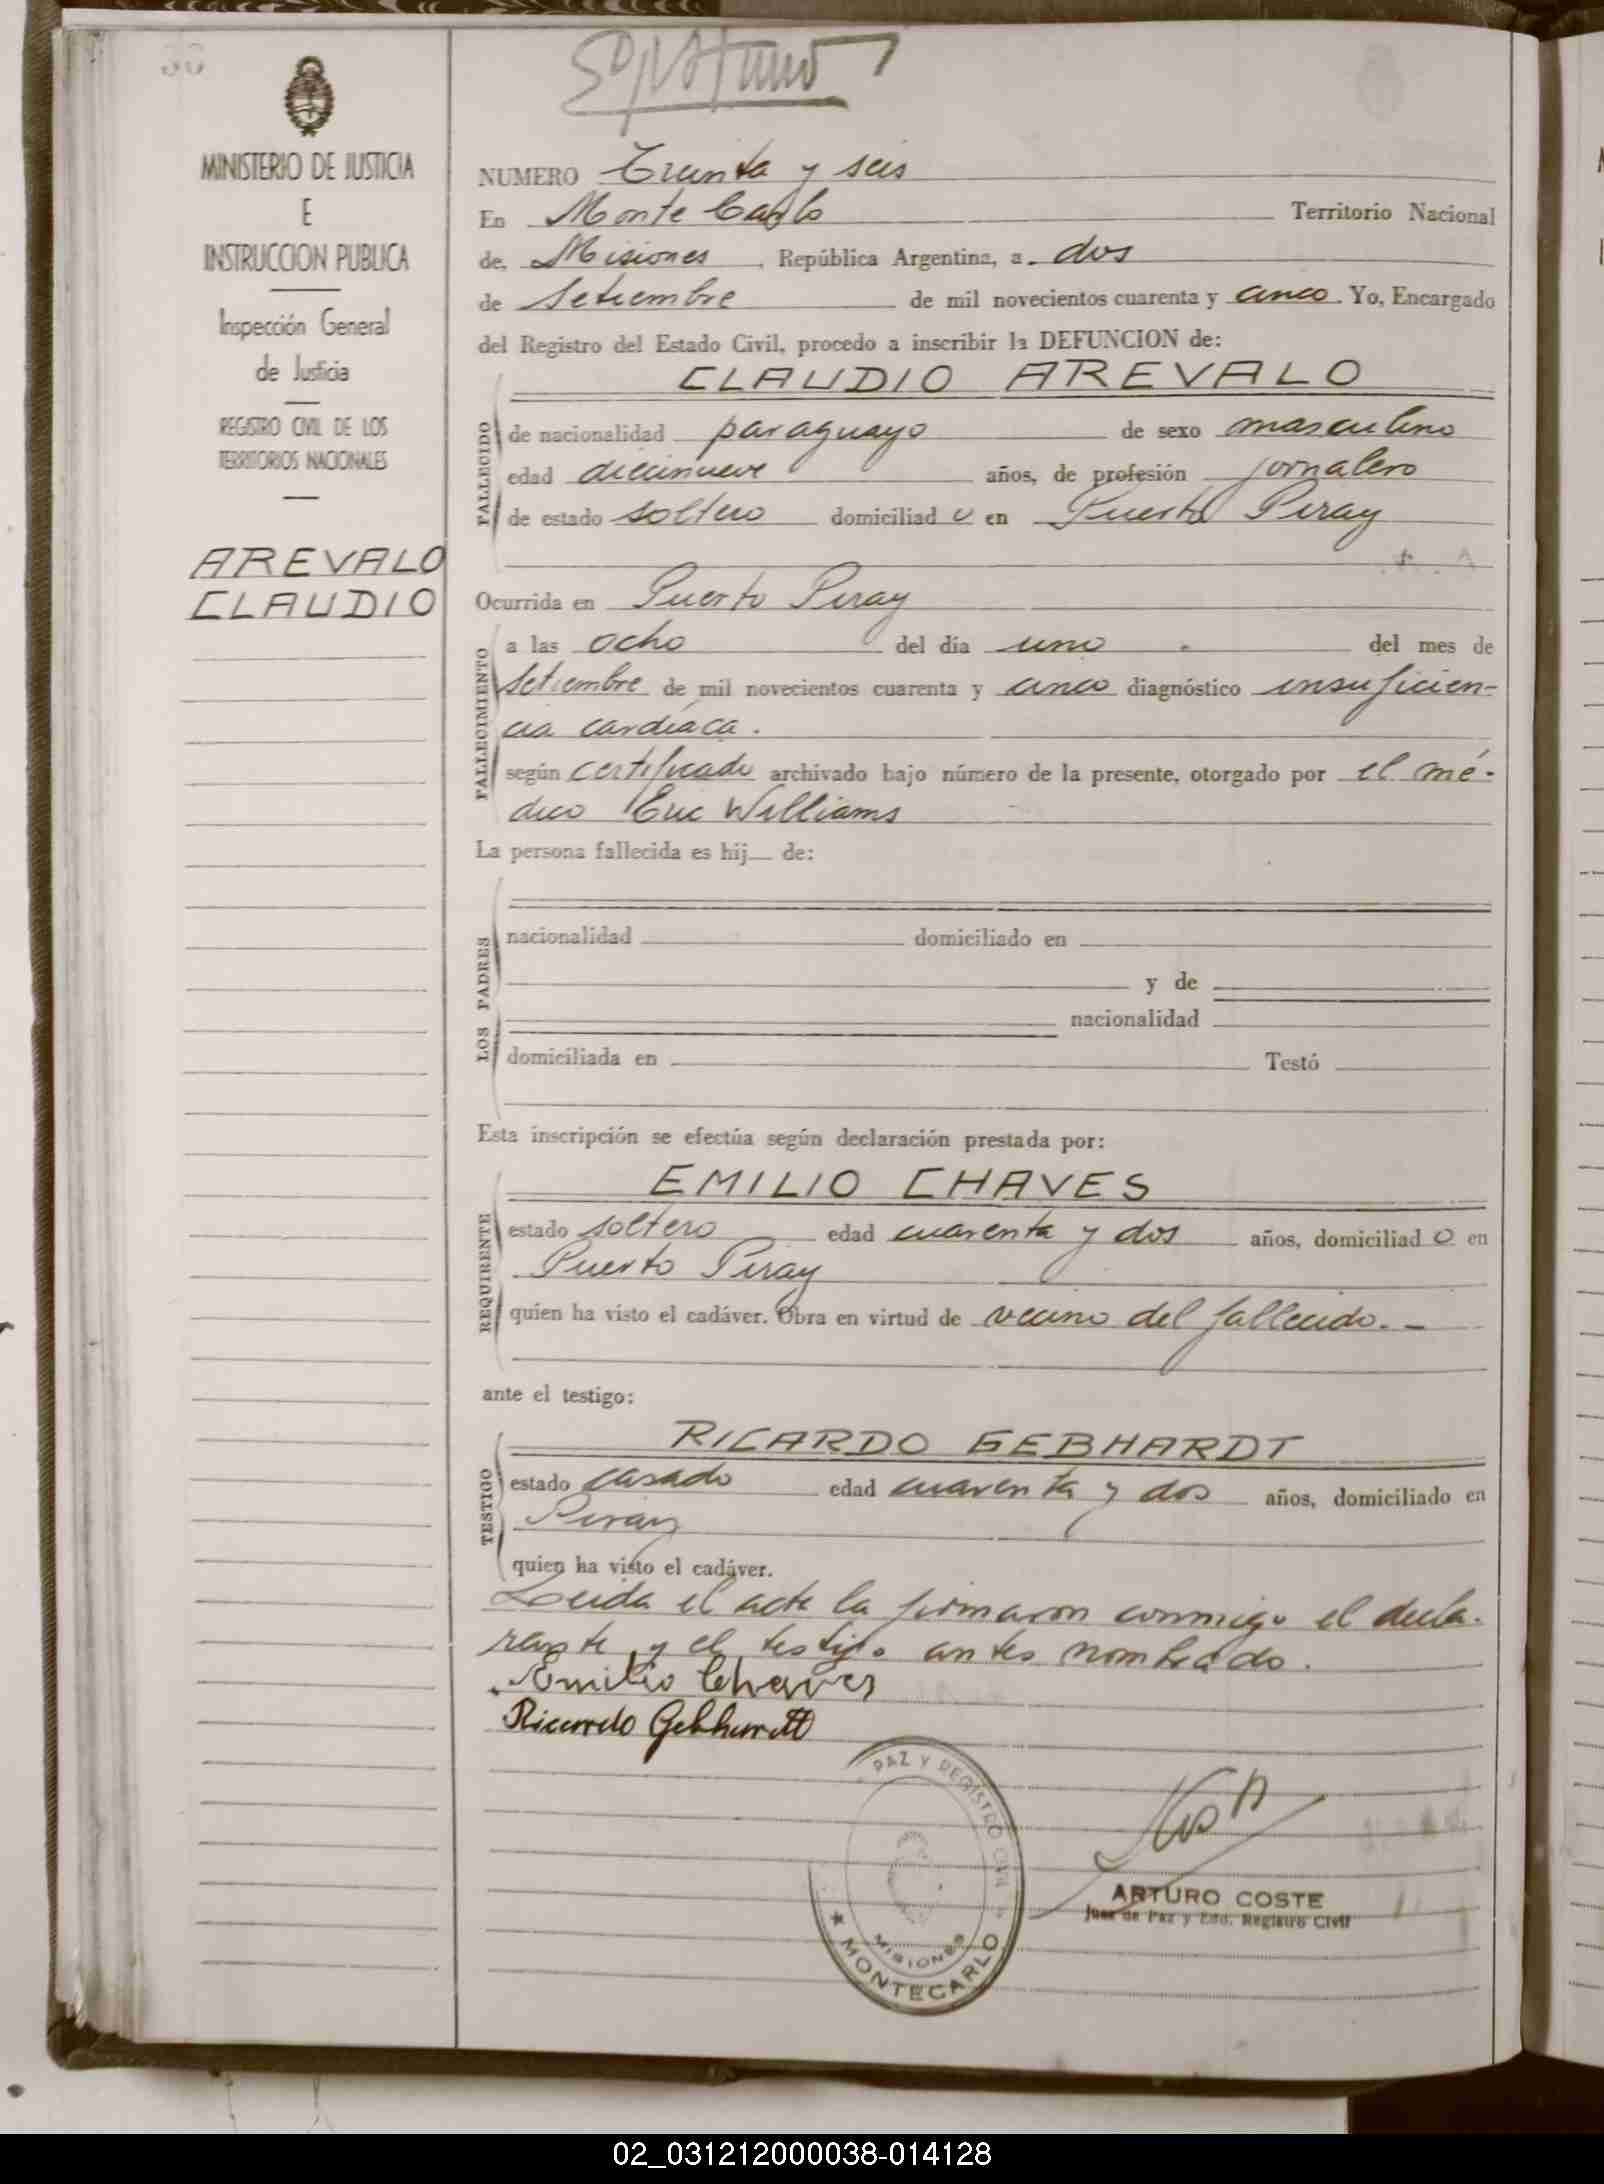 MINISTERIO DE JUSTICIA
E
INSTRUCCION PUBLICA
Inspección General
de Justicia
REGISTRO CIVIL DE LOS
TERRITORIOS NACIONALES
AREVALO
CLAUDIO
NUMERO Treinta y seis
En Monte Carlo Territorio Nacional
de, Misiones, República Argentina, a. dos
de Setiembre de mil novecientos cuarenta y cinco. Yo, Encargado
del Registro del Estado Civil, procedo a inscribir la DEFUNCION de:
CLAUDIO AREVALO
FALLECIDO
de nacionalidad paraguayo de sexo masculino
edad diecinueve años, de profesión jornalero
de estado soltero domiciliad o en Puerto Piray
Ocurrida en Puerto Piray
FALLECIMIENTO
a las ocho del día uno del mes de
Setiembre de mil novecientos cuarenta y cinco diagnóstico insuficien-
cia cardíaca.
según certificado archivado bajo número de la presente, otorgado por el mé-
dico Eric Williams
La persona fallecida es hij de:
LOS PADRES
nacionalidad domiciliado en
y de
nacionalidad
domiciliada en Testó
Esta inscripción se efectúa según declaración prestada por:
EMILIO CHAVES
REQUIRENTE
estado soltero edad cuarenta y dos años, domiciliad o en
Puerto Piray
quien ha visto el cadáver. Obra en virtud de vecino del fallecido.-
ante el testigo:
RICARDO GEBHARDT
TESTIGO
estado casado edad cuarenta y dos años, domiciliado en
Piray
quien ha visto el cadáver.
Leida el acta la firmaron conmigo el decla-
rante y el testigo antes nombrado.
Emilio Chaves
Ricardo Gebhardt
PAZ Y REGISTRO CIVIL
MISIONES
★ MONTECARLO
ARTURO COSTE
Juez de Paz y Enc. Registro Civil
02_031212000038-014128